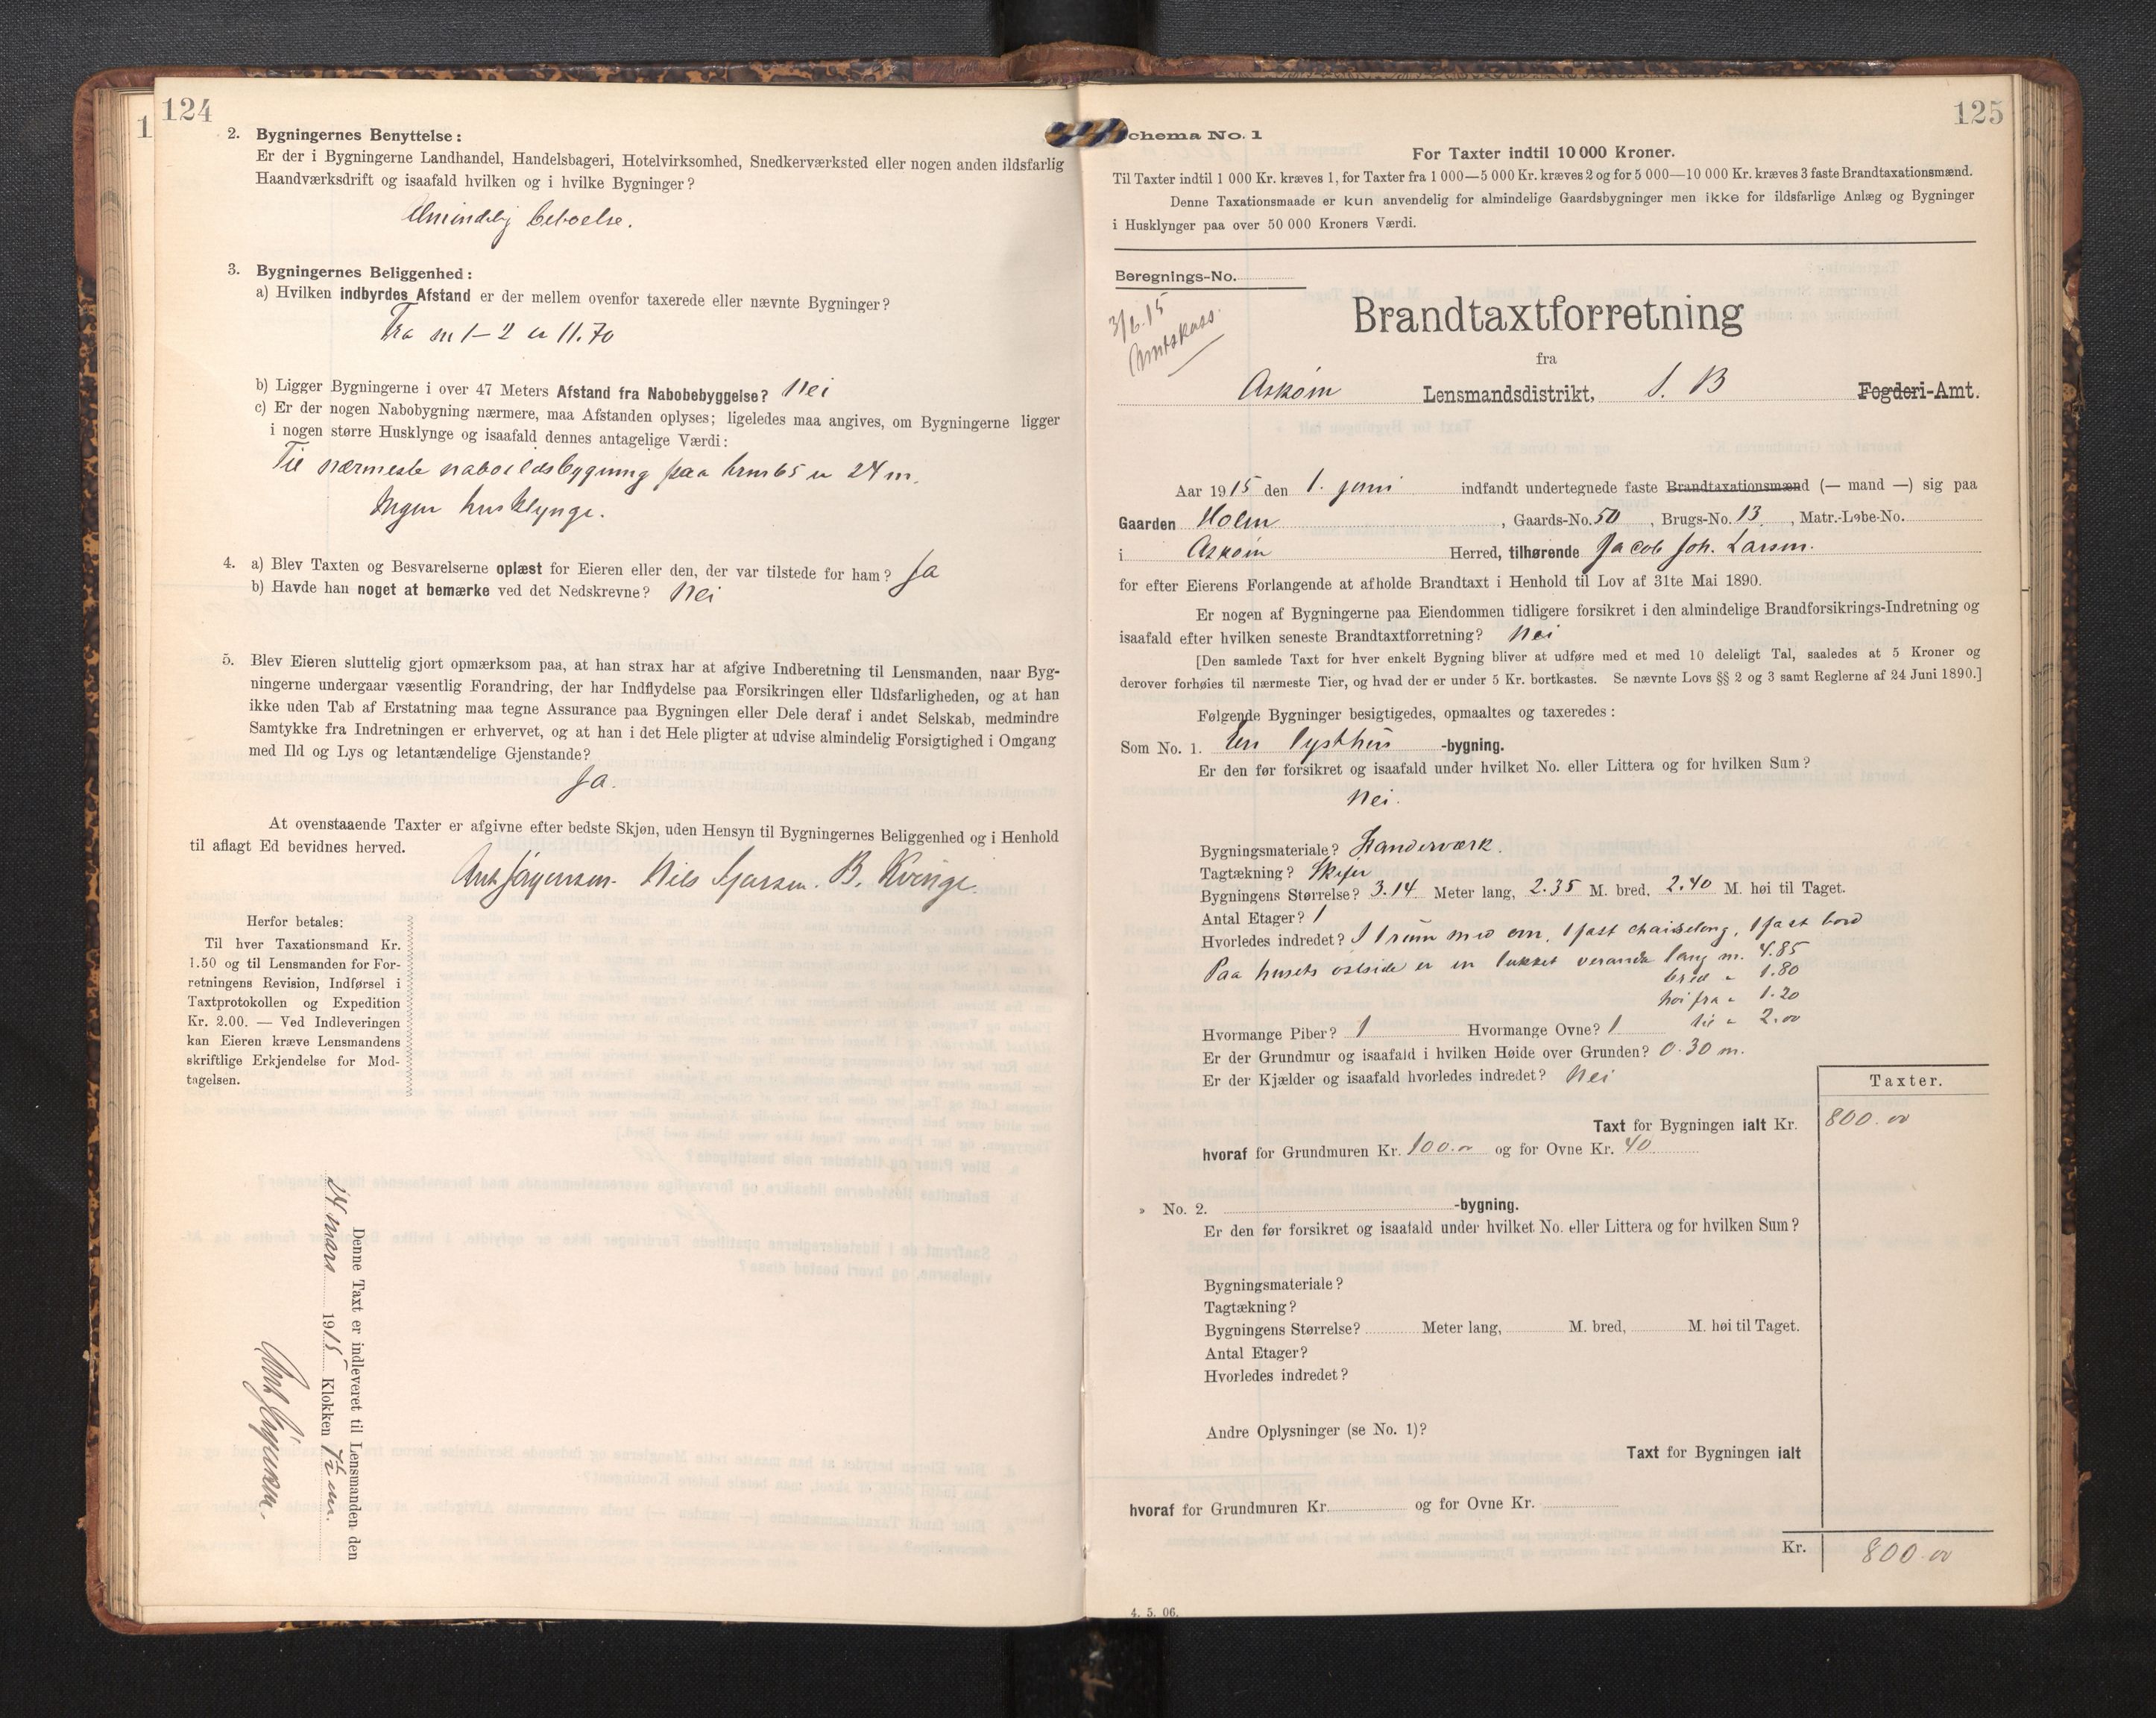 124
1
2. Bygningernes Benyttelse:
Er der i Bygningerne Landhandel, Handelsbageri, Hotelvirksomhed, Snedkerværksted eller nogen anden ildsfarlig
Haandværksdrift og isaafald hvilken og i hvilke Bygninger?
Almindelig beboelse.
3. Bygningernes Beliggenhed:
a) Hvilken indbyrdes Afstand er der mellem ovenfor taxerede eller nævnte Bygninger?
Fra no 1–2 er 11.70
b) Ligger Bygningerne i over 47 Meters Afstand fra Nabobebyggelse? Nei
c) Er der nogen Nabobygning nærmere, maa Afstanden oplyses; ligeledes maa angives, om Bygningerne ligger
i nogen større Husklynge og isaafald dennes antagelige Værdi:
Til nærmeste naboildsbygning paa brno 65 er 24 m.
Ingen husklynge.
4. a) Blev Taxten og Besvarelserne oplæst for Eieren eller den, der var tilstede for ham? Ja
b) Havde han noget at bemærke ved det Nedskrevne? Nei
5. Blev Eieren sluttelig gjort opmærksom paa, at han strax har at afgive Indberetning til Lensmanden, naar Byg-
ningerne undergaar væsentlig Forandring, der har Indflydelse paa Forsikringen eller Ildsfarligheden, og at han
ikke uden Tab af Erstatning maa tegne Assurance paa Bygningen eller Dele deraf i andet Selskab, medmindre
Samtykke fra Indretningen er erhvervet, og at han i det Hele pligter at udvise almindelig Forsigtighed i Omgang
med Ild og Lys og letantændelige Gjenstande?
Ja.
At ovenstaaende Taxter er afgivne efter bedste Skjøn, uden Hensyn til Bygningernes Beliggenhed og i Henhold
til aflagt Ed bevidnes herved.
Ant Jørgensen. Nils B. Kvinge.
Herfor betales:
Til hver Taxationsmand Kr.
1.50 og til Lensmanden for For-
retningens Revision, Indførsel i
Taxtprotokollen og Expedition
Kr. 2.00. — Ved Indleveringen
kan Eieren kræve Lensmandens
skriftlige Erkjendelse for Mod-
tagelsen.
Denne Taxt er indleveret til Lensmanden den
24 mars 1915 Klokken
Ant Jørgensen.
125
chema No. 1
For Taxter indtil 10 000 Kroner.
Til Taxter indtil 1 000 Kr. kræves 1, for Taxter fra 1 000—5 000 Kr. kræves 2 og for 5 000—10 000 Kr. kræves 3 faste Brandtaxationsmænd.
Denne Taxationsmaade er kun anvendelig for almindelige Gaardsbygninger men ikke for ildsfarlige Anlæg og Bygninger
i Husklynger paa over 50 000 Kroners Værdi.
Beregnings-No.
3/6.15
Amtskass.
Brandtaxtforretning
fra
Askøin Lensmandsdistrikt, S. B Fogderi-Amt.
Aar 1915 den 1. juni indfandt undertegnede faste Brandtaxationsmænd (— mand —) sig paa
Gaarden Holm, Gaards-No. 50, Brugs-No. 13, Matr.-Løbe-No.
i Askøin Herred, tilhørende Jacob Joh. Larsen.
for efter Eierens Forlangende at afholde Brandtaxt i Henhold til Lov af 31te Mai 1890.
Er nogen af Bygningerne paa Eiendommen tidligere forsikret i den almindelige Brandforsikrings-Indretning og
isaafald efter hvilken seneste Brandtaxtforretning? Nei
[Den samlede Taxt for hver enkelt Bygning bliver at udføre med et med 10 deleligt Tal, saaledes at 5 Kroner og
derover forhøies til nærmeste Tier, og hvad der er under 5 Kr. bortkastes. Se nævnte Lovs §§ 2 og 3 samt Reglerne af 24 Juni 1890.]
Følgende Bygninger besigtigedes, opmaaltes og taxeredes:
Som No. 1. En lysthus -bygning.
Er den før forsikret og isaafald under hvilket No. eller Littera og for hvilken Sum?
Nei.
Bygningsmateriale? Standerværk.
Tagtækning? Skifer
Bygningens Størrelse? 3.14 Meter lang, 2.35 M. bred, 2.40 M. høi til Taget.
Antal Etager? 1
Hvorledes indredet? I 1 rum med ovn, 1 fast chaiselong, 1 fast bord
Paa husets østside er en lukket veranda lang m. 4.85
bred " 1.80
høi fra " 1.20
til " 2.00
Hvormange Piber? 1 Hvormange Ovne? 1
Er der Grundmur og isaafald i hvilken Høide over Grunden? 0.30 m.
Er der Kjælder og isaafald hvorledes indredet? Nei
Taxter.
Taxt for Bygningen ialt Kr. 800.00
hvoraf for Grundmuren Kr. 100.00 og for Ovne Kr. 40
» No. 2. -bygning.
Er den før forsikret og isaafald under hvilket No. eller Littera og for hvilken Sum?
Bygningsmateriale?
Tagtækning?
Bygningens Størrelse? Meter lang, M. bred, M. høi til Taget.
Antal Etager?
Hvorledes indredet?
Andre Oplysninger (se No. 1)?
Taxt for Bygningen ialt
hvoraf for Grundmuren Kr. og for Ovne Kr.
Kr. 800.00
4. 5. 06.